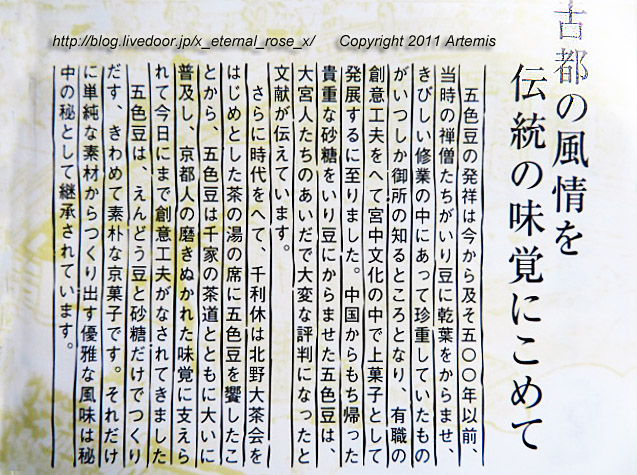 http://blog.livedoor.jp/x_eternal_rose_x/ Copyright 2011 Artemis
古都の風情を
伝統の味覚にこめて
五色豆の発祥は今から及そ五〇〇年以前、
当時の禅僧たちがいり豆に乾葉をからませ、
きびしい修業の中にあって珍重していたもの
がいつしか御所の知るところとなり、有職の
創意工夫をへて宮中文化の中で上菓子として
発展するに至りました。中国からもち帰った
貴重な砂糖をいり豆にからませた五色豆は、
大宮人たちのあいだで大変な評判になったと
文献が伝えています。
さらに時代をへて、千利休は北野大茶会を
はじめとした茶の湯の席に五色豆を饗したこ
とから、五色豆は千家の茶道とともに大いに
普及し、京都人の磨きぬかれた味覚に支えら
れて今日にまで創意工夫がなされてきました
五色豆は、えんどう豆と砂糖だけでつくり
だす、きわめて素朴な京菓子です。それだけ
に単純な素材からつくり出す優雅な風味は秘
中の秘として継承されています。